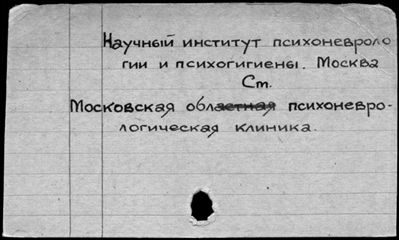 Научный институт психоневроло
гии и психогигиены. Москва
Ст.
Московская областная психоневро-
логическая клиника.